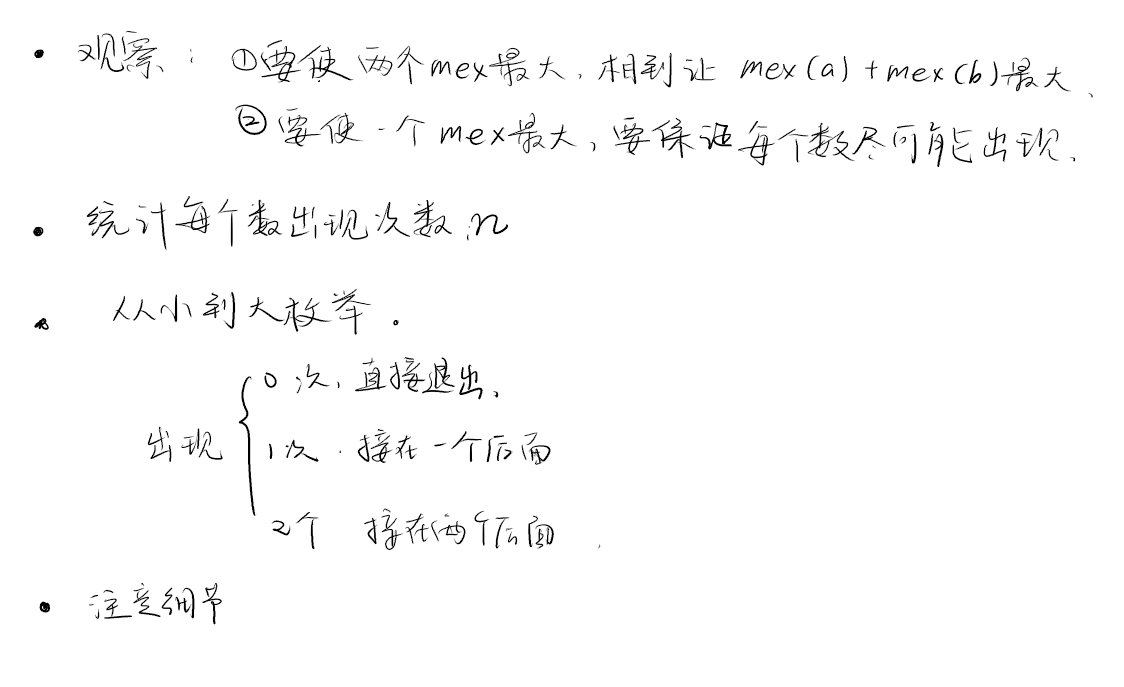 • 观察：①要使两个mex最大，相到让 mex(a)+mex(b)最大、
②要使一个mex最大，要保证每个数尽可能出现、
• 统计每个数出现次数n
• 从小到大枚举.
0次，直接退出、
出现 { 1次. 接在一个后面
2个 接在两个后面.
• 注意细节